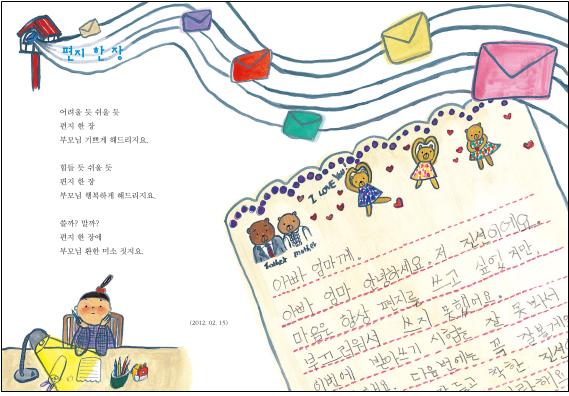 편지 한 장
어려울 듯 쉬울 듯
편지 한 장
부모님 기쁘게 해드리지요.
힘들 듯 쉬울 듯
편지 한 장
부모님 행복하게 해드리지요.
쓸까? 말까?
편지 한 장에
부모님 환한 미소 짓지요.
(2012. 02. 15)
I LOVE You!
father mother
아빠 엄마께.
아빠 엄마 안녕하세요. 저 진선이에요.
마음은 항상 편지를 쓰고 싶었지만
부끄러워서 쓰지 못했어요.
이번에 받아쓰기 시험을 잘 못봐서
다음번에는 꼭
착한 진선